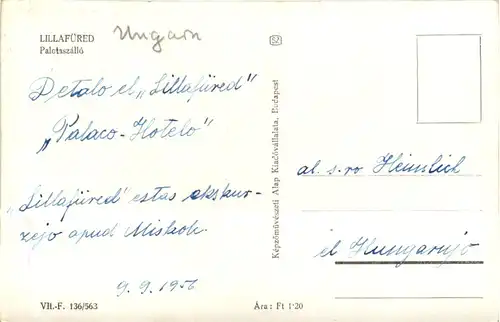 LILLAFÜRED
Palotaszálló
Ungarn
Detalo el „Lillafüred"
„Palaco-Hotelo"
„Lillafüred" estas ekskur-
zejo apud Miskolc.
9. 9. 1956
Vlt.-F. 136/563
Ára: Ft 1·20
Képzőművészeti Alap Kiadóvállalata, Budapest
al s-ro Heinslich
el Hungarujo